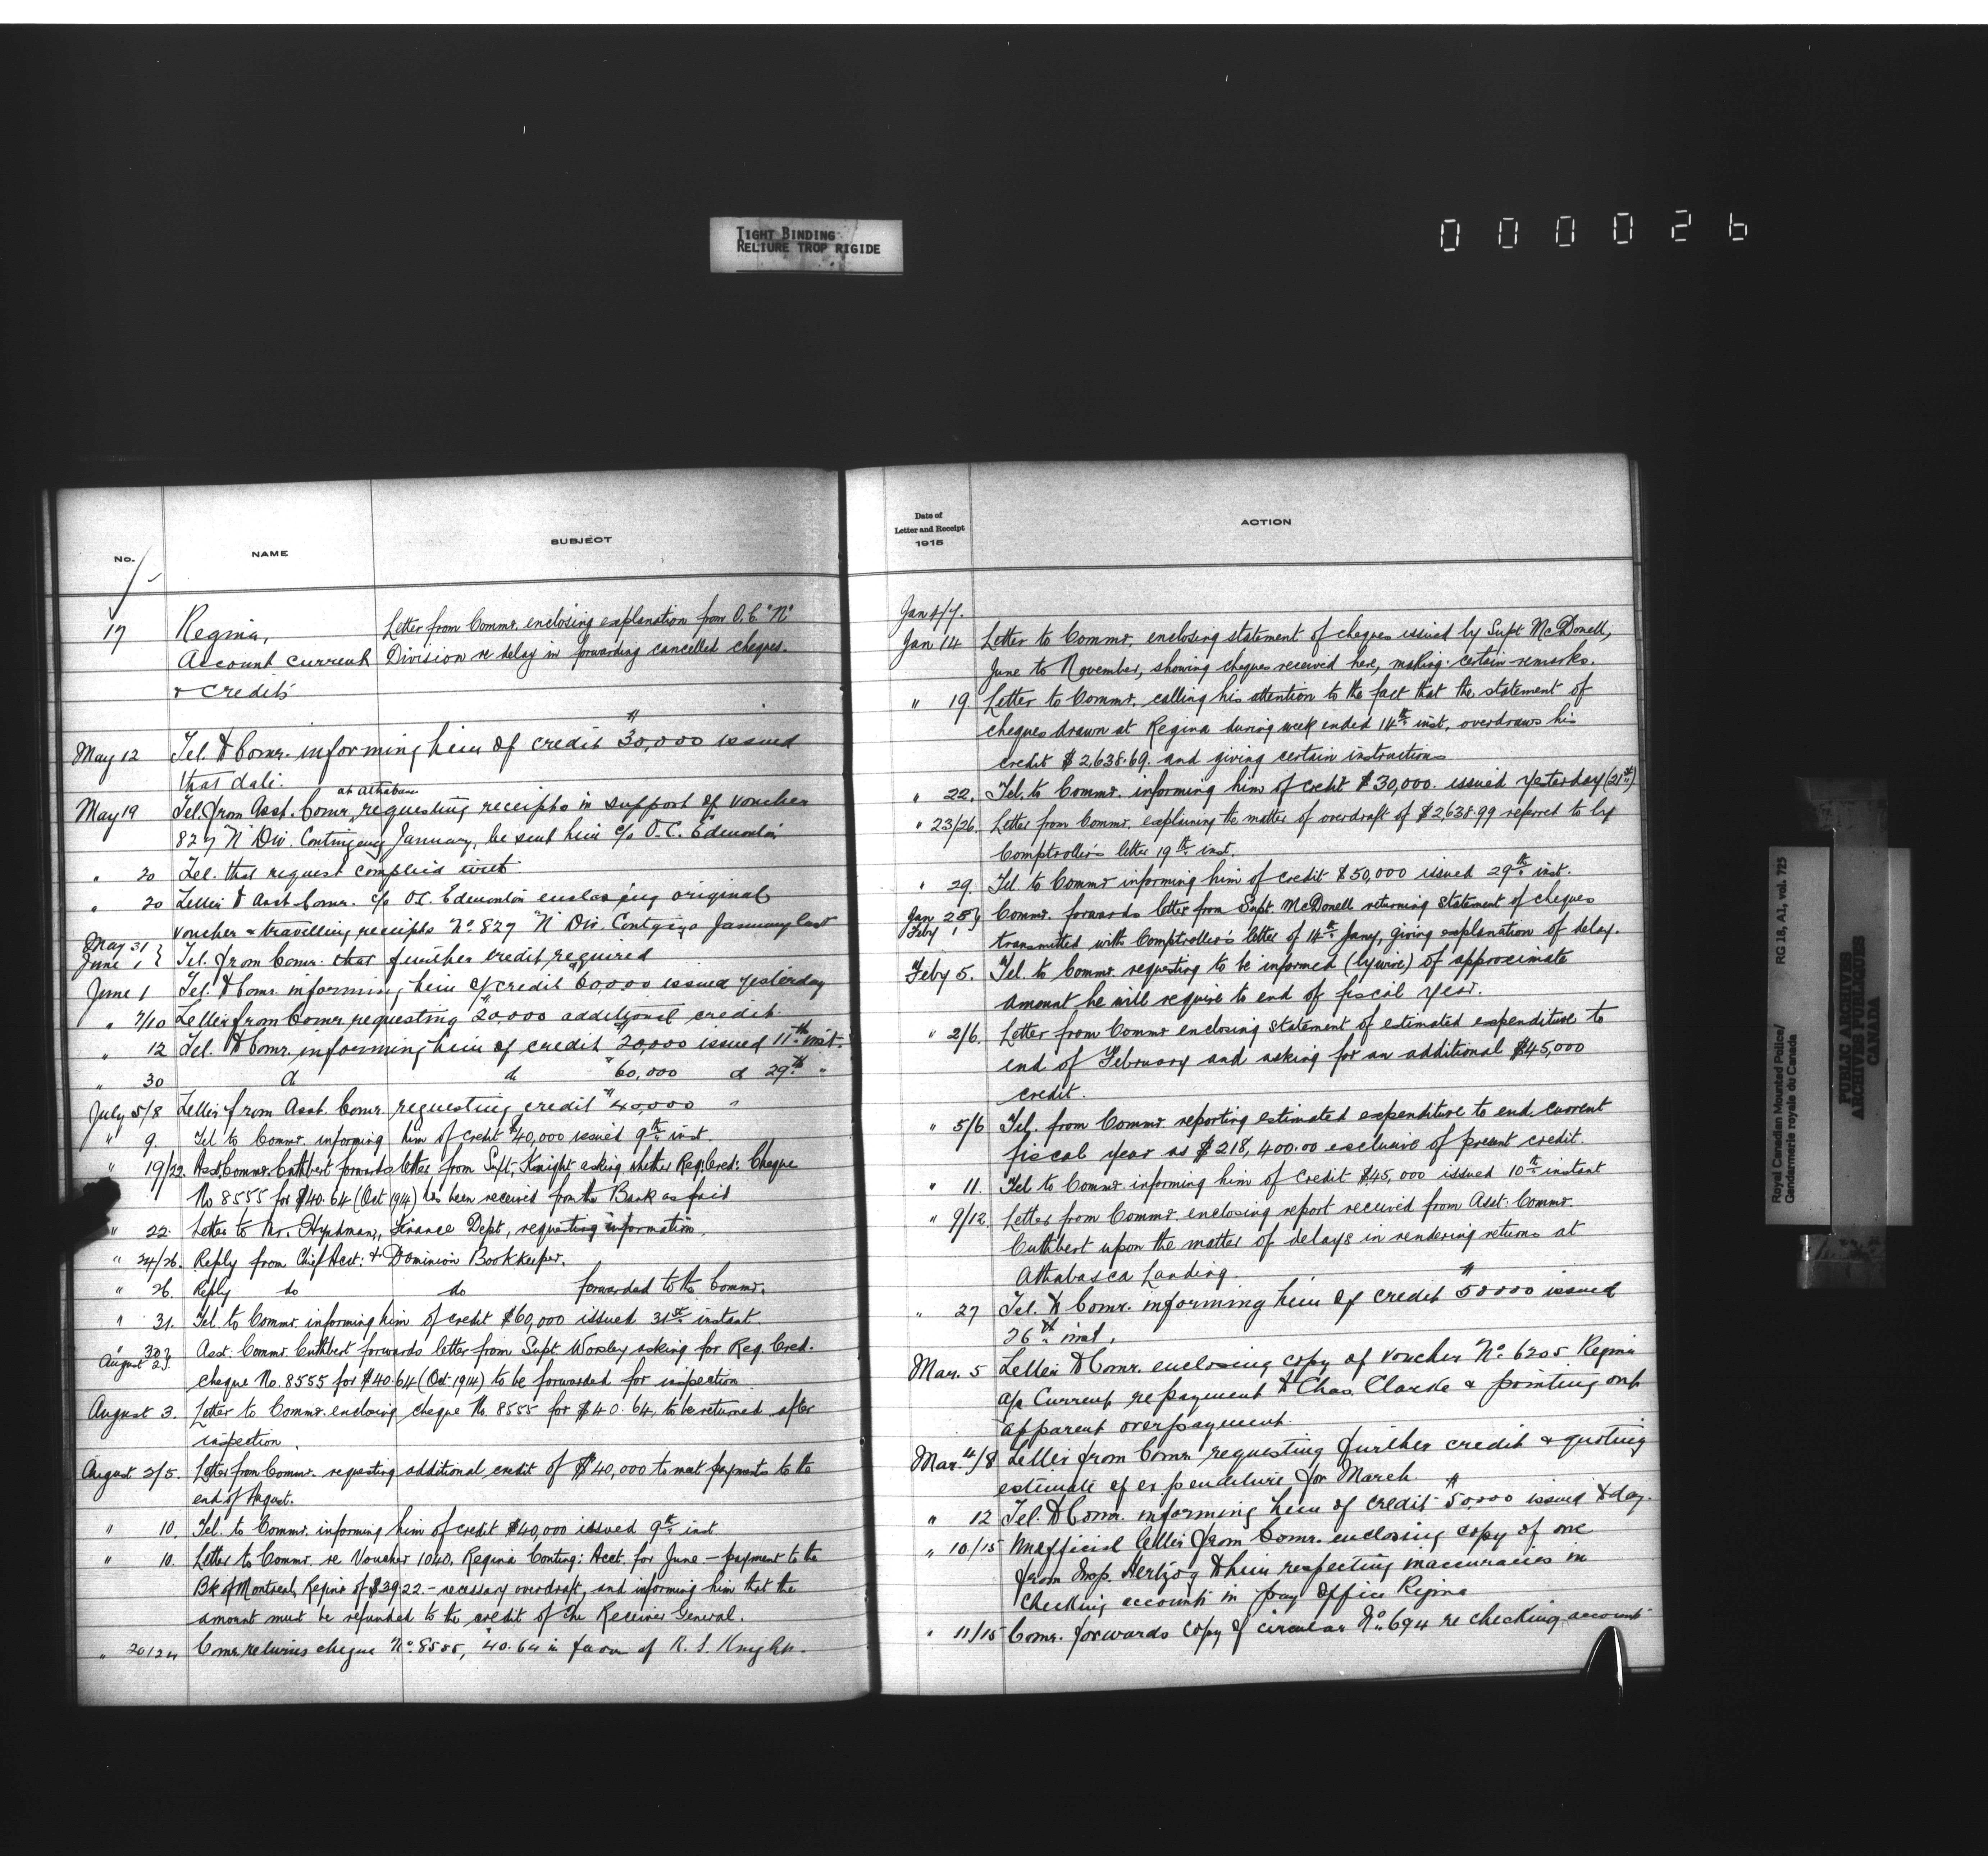 TIGHT BINDING
RELIURE TROP RIGIDE
000026
No.
NAME
SUBJECT
17
Regina,
Account current
& Credits
Letter from Commr. enclosing explanation from O.C. "N"
Division re delay in forwarding cancelled cheques.
May 12 Tel. to Comr. informing him of credit $30,000 issued
that date.
at Athabasca
May 19 Tel. from Asst. Comr. requesting receipts in support of voucher
827 "N" Div. Contingency January, be sent him c/o O.C. Edmonton
" 20 Tel. that request complied with.
" 20 Letter to Asst. Comr. c/o O.C. Edmonton enclosing original
voucher & travelling receipts No. 827 "N" Div. January last
May 31 }
June 1 } Tel. from Comr. that further credit required
June 1 Tel. to Comr. informing him of credit $60,000 issued yesterday
" 7/10 Letter from Comr. requesting $20,000 additional credit.
" 12 Tel. to Comr. informing him of credit $20,000 issued 11th inst.
" 30 do do $60,000 do 29th "
July 5/8 Letter from Asst. Comr. requesting credit $40,000
" 9. Tel. to Commr. informing him of credit $40,000 issued 9th inst.
" 19/22. Asst. Commr. Cuthbert forwards letter from Supt. Knight asking whether Reg. Cred: Cheque
No 8555 for $40.64 (Oct 1914) has been received from the Bank as paid
" 22. Letter to Mr. Hyndman, Finance Dept, requesting information.
" 24/26. Reply from Chief Acct: & Dominion Bookkeeper.
" 26. Reply do do forwarded to the Commr.
" 31. Tel. to Commr. informing him of credit $60,000 issued 31st instant.
" 30 }
August 2 }. Asst. Commr. Cuthbert forwards letter from Supt Worsley asking for Reg. Cred.
cheque No. 8555 for $40.64 (Oct 1914) to be forwarded for inspection
August 3. Letter to Commr. enclosing cheque No. 8555 for $40.64, to be returned after
inspection.
August 2/5. Letter from Commr. requesting additional credit of $40,000 to meet payments to the
end of August.
" 10. Tel. to Commr. informing him of credit $40,000 issued 9th inst
" 10. Letter to Commr. re Voucher 1040. Regina Conting: Acct. for June - payment to the
Bk of Montreal, Regina of $39.22. - necessary overdraft, and informing him that the
amount must be refunded to the credit of the Receiver General.
" 20/24 Comr. returns cheque No. 8555, $40.64 in favour of R. S. Knight.
Date of
Letter and Receipt
1915
ACTION
Jan 4/7.
Jan 14 Letter to Commr. enclosing statement of cheques issued by Supt McDonell,
June to November, showing cheques received here, making certain remarks.
" 19 Letter to Commr. calling his attention to the fact that the statement of
cheques drawn at Regina during week ended 14th inst. overdraws his
credit $2,638.69. and giving certain instructions
" 22. Tel. to Commr. informing him of credit $30,000. issued yesterday (21st)
" 23/26. Letter from Commr. explaining the matter of overdraft of $2638.99 referred to by
Comptroller's letter 19th inst.
" 29. Tel. to Commr informing him of credit $50,000 issued 29th inst.
Jan 28 }
Feby 1 } Commr. forwards letter from Supt. McDonell returning statement of cheques
transmitted with Comptroller's letter of 14th Jany, giving explanation of delay.
Feby 5. Tel. to Commr. requesting to be informed (by wire) of approximate
amount he will require to end of fiscal year.
" 2/6. Letter from Commr enclosing statement of estimated expenditure to
end of February and asking for an additional $45,000
credit.
" 5/6 Tel. from Commr. reporting estimated expenditure to end current
fiscal year as $218,400.00 exclusive of present credit.
" 11. Tel to Commr informing him of credit $45,000 issued 10th instant
" 9/12. Letter from Commr. enclosing report received from Asst. Commr.
Cuthbert upon the matter of delays in rendering returns at
Athabasca Landing.
" 27 Tel. to Comr. informing him of credit $50000 issued
26th inst.
Mar. 5 Letter to Comr. enclosing copy of voucher No. 6205 Regina
a/c Current repayment to Chas. Clarke & pointing out
apparent overpayment.
Mar. 4/8 Letter from Comr. requesting further credit & quoting
estimate of expenditure for March.
" 12 Tel. to Comr. informing him of credit $50,000 issued to day.
" 10/15 Unofficial letter from Comr. enclosing copy of one
from Insp. Hertzog to him respecting inaccuracies in
checking accounts in pay office Regina
" 11/15 Comr. forwards copy of circular No. 694 re checking accounts
Royal Canadian Mounted Police/
Gendarmerie royale du Canada
RG 18, A1, vol. 725
PUBLIC ARCHIVES
ARCHIVES PUBLIQUES
CANADA